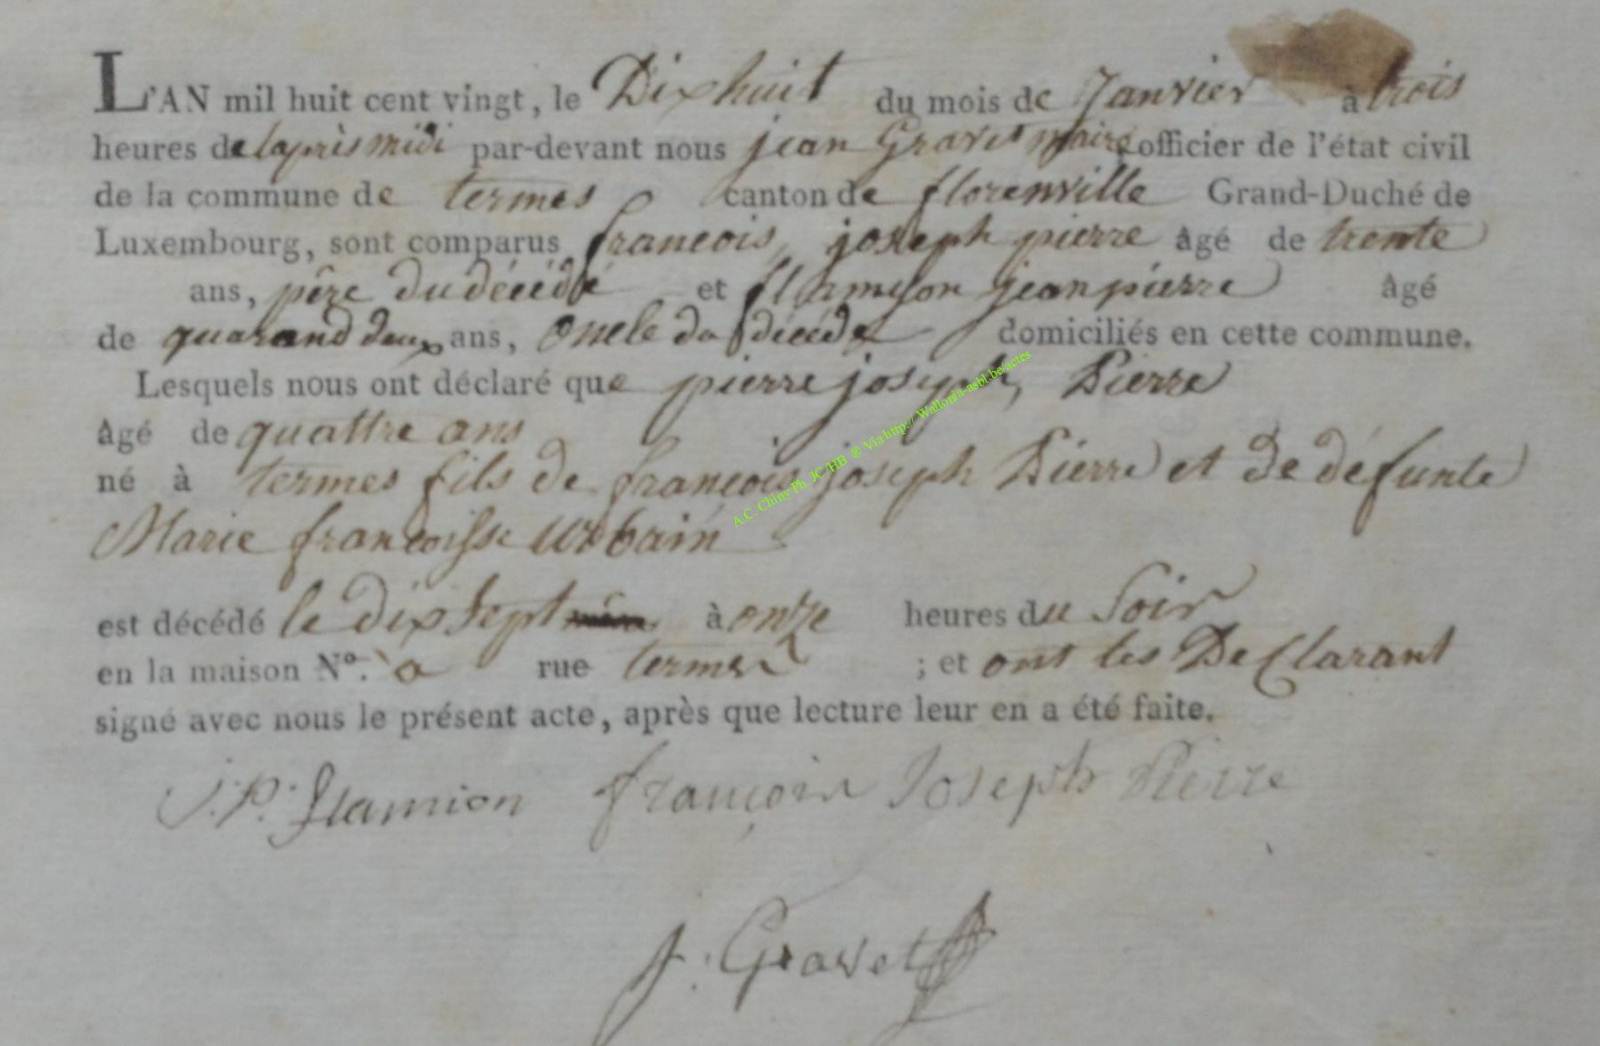 L'AN mil huit cent vingt, le Dix huit du mois de Janvier à trois
heures de laprès midi par-devant nous jean Gravet maire officier de l'état civil
de la commune de termes canton de florenville Grand-Duché de
Luxembourg, sont comparus francois, joseph pierre âgé de trente
ans, père du décédé et jean pierre âgé
de quarand deux ans, oncle du décédé domiciliés en cette commune.
Lesquels nous ont déclaré que pierre joseph, Pierre
âgé de quattre ans
né à termes fils de françois joseph Pierre et de défunte
Marie francoisse urbain
est décédé le dix sept à onze heures du Soir
en la maison Nº. a rue termes ; et ont les DeClarant
signé avec nous le présent acte, après que lecture leur en a été faite.
J. P. flamion françois Joseph Pierre
J. Gravet
A.C. Chiny Ph. JC HB @ Via http:// Wallonia-asbl.be/actes